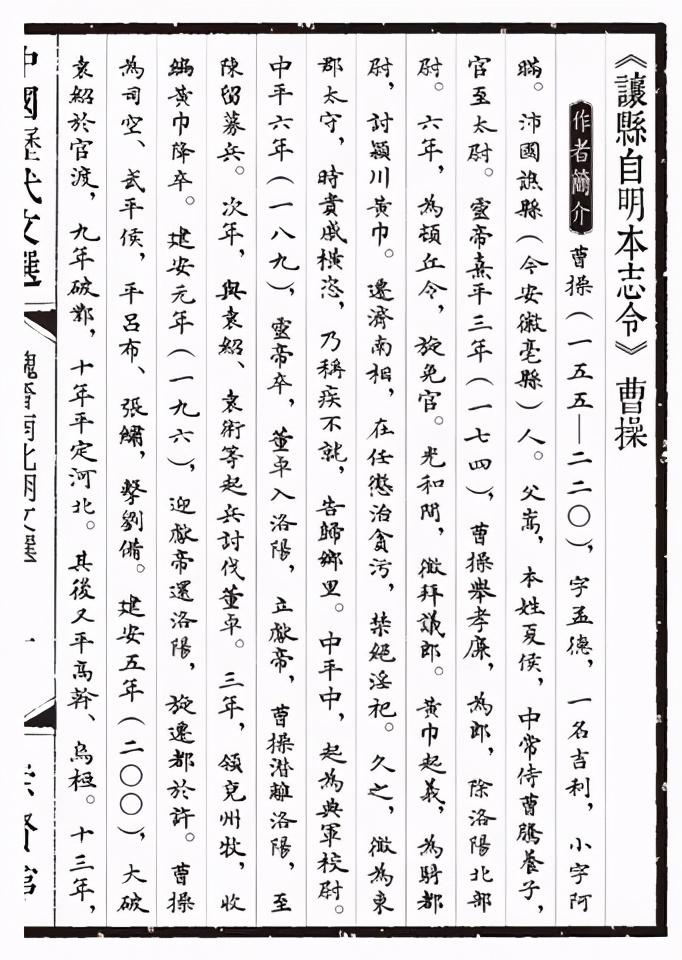 《讓縣自明本志令》 曹操
作者簡介 曹操(一五五—二二〇),字孟德,一名吉利,小字阿
瞞。沛國譙縣(今安徽亳縣)人。父嵩,本姓夏侯,中常侍曹騰養子,
官至太尉。靈帝熹平三年(一七四),曹操舉孝廉,為郎,除洛陽北部
尉。六年,為頓丘令,旋免官。光和間,徵拜議郎。黃巾起義,為騎都
尉,討潁川黃巾。遷濟南相,在任懲治貪污,禁絕淫祀。久之,徵為東
郡太守,時貴戚橫恣,乃稱疾不就,告歸鄉里。中平中,起為典軍校尉。
中平六年(一八九),靈帝卒,董卓入洛陽,立獻帝,曹操潛離洛陽,至
陳留募兵。次年,與袁紹、袁術等起兵討伐董卓。三年,領兗州牧,收
編黃巾降卒。建安元年(一九六),迎獻帝還洛陽,旋遷都於許。曹操
為司空、武平侯,平呂布、張繡,擊劉備。建安五年(二〇〇),大破
袁紹於官渡,九年破鄴,十年平定河北。其後又平高幹、烏桓。十三年,
中國歷代文選
魏晉南北朝文選
一
崇賢館